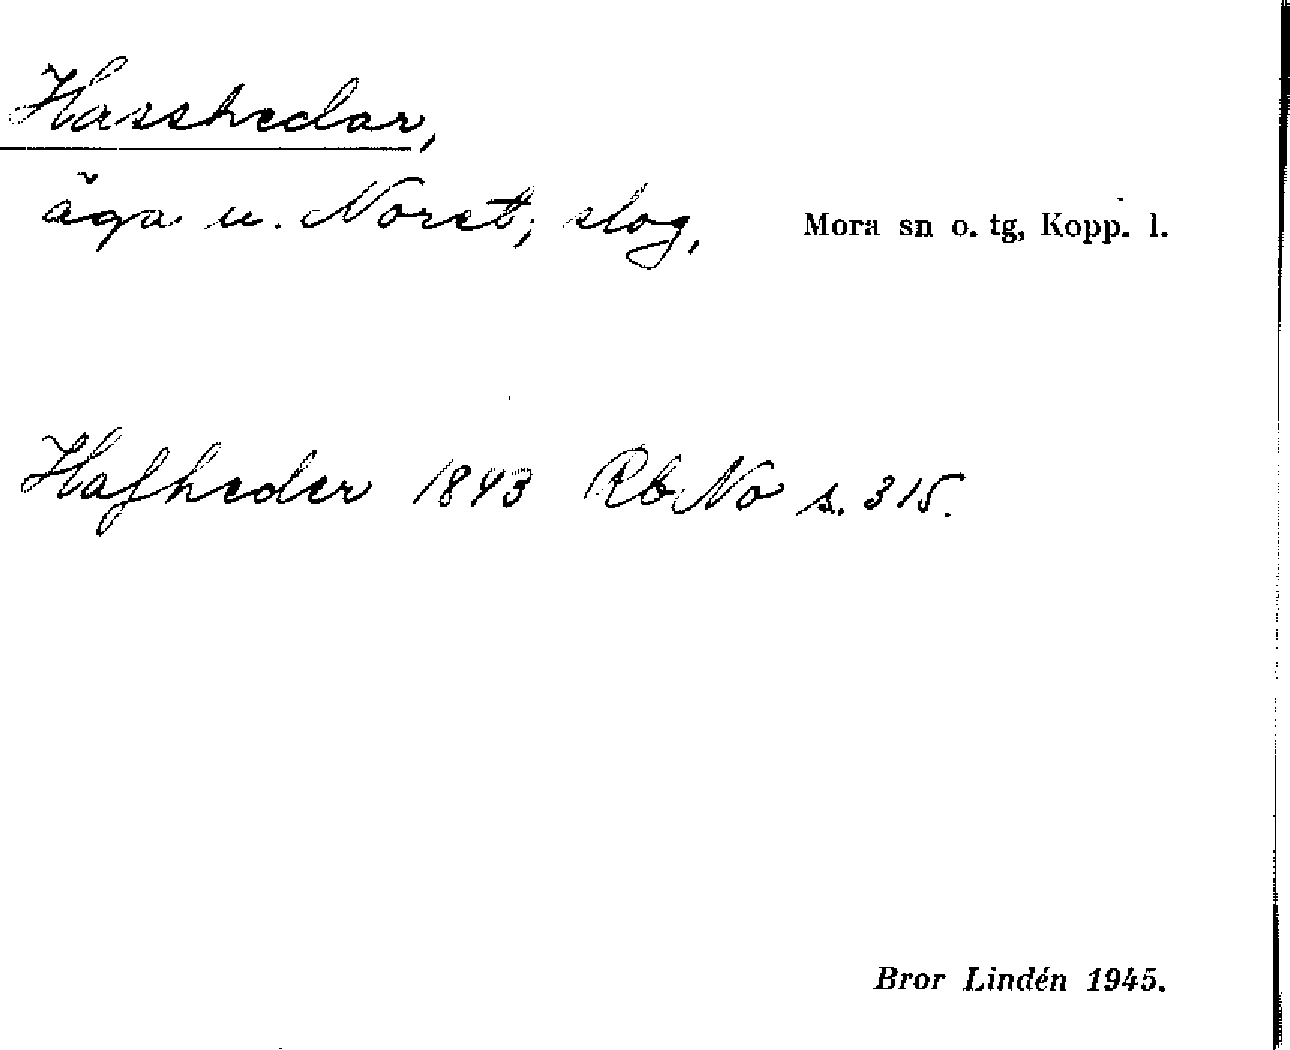 Hasshedar,
äga u. Noret; slog, Mora sn o. tg, Kopp. l.
Hafheder 1843 Rb No s. 315.
Bror Lindén 1945.